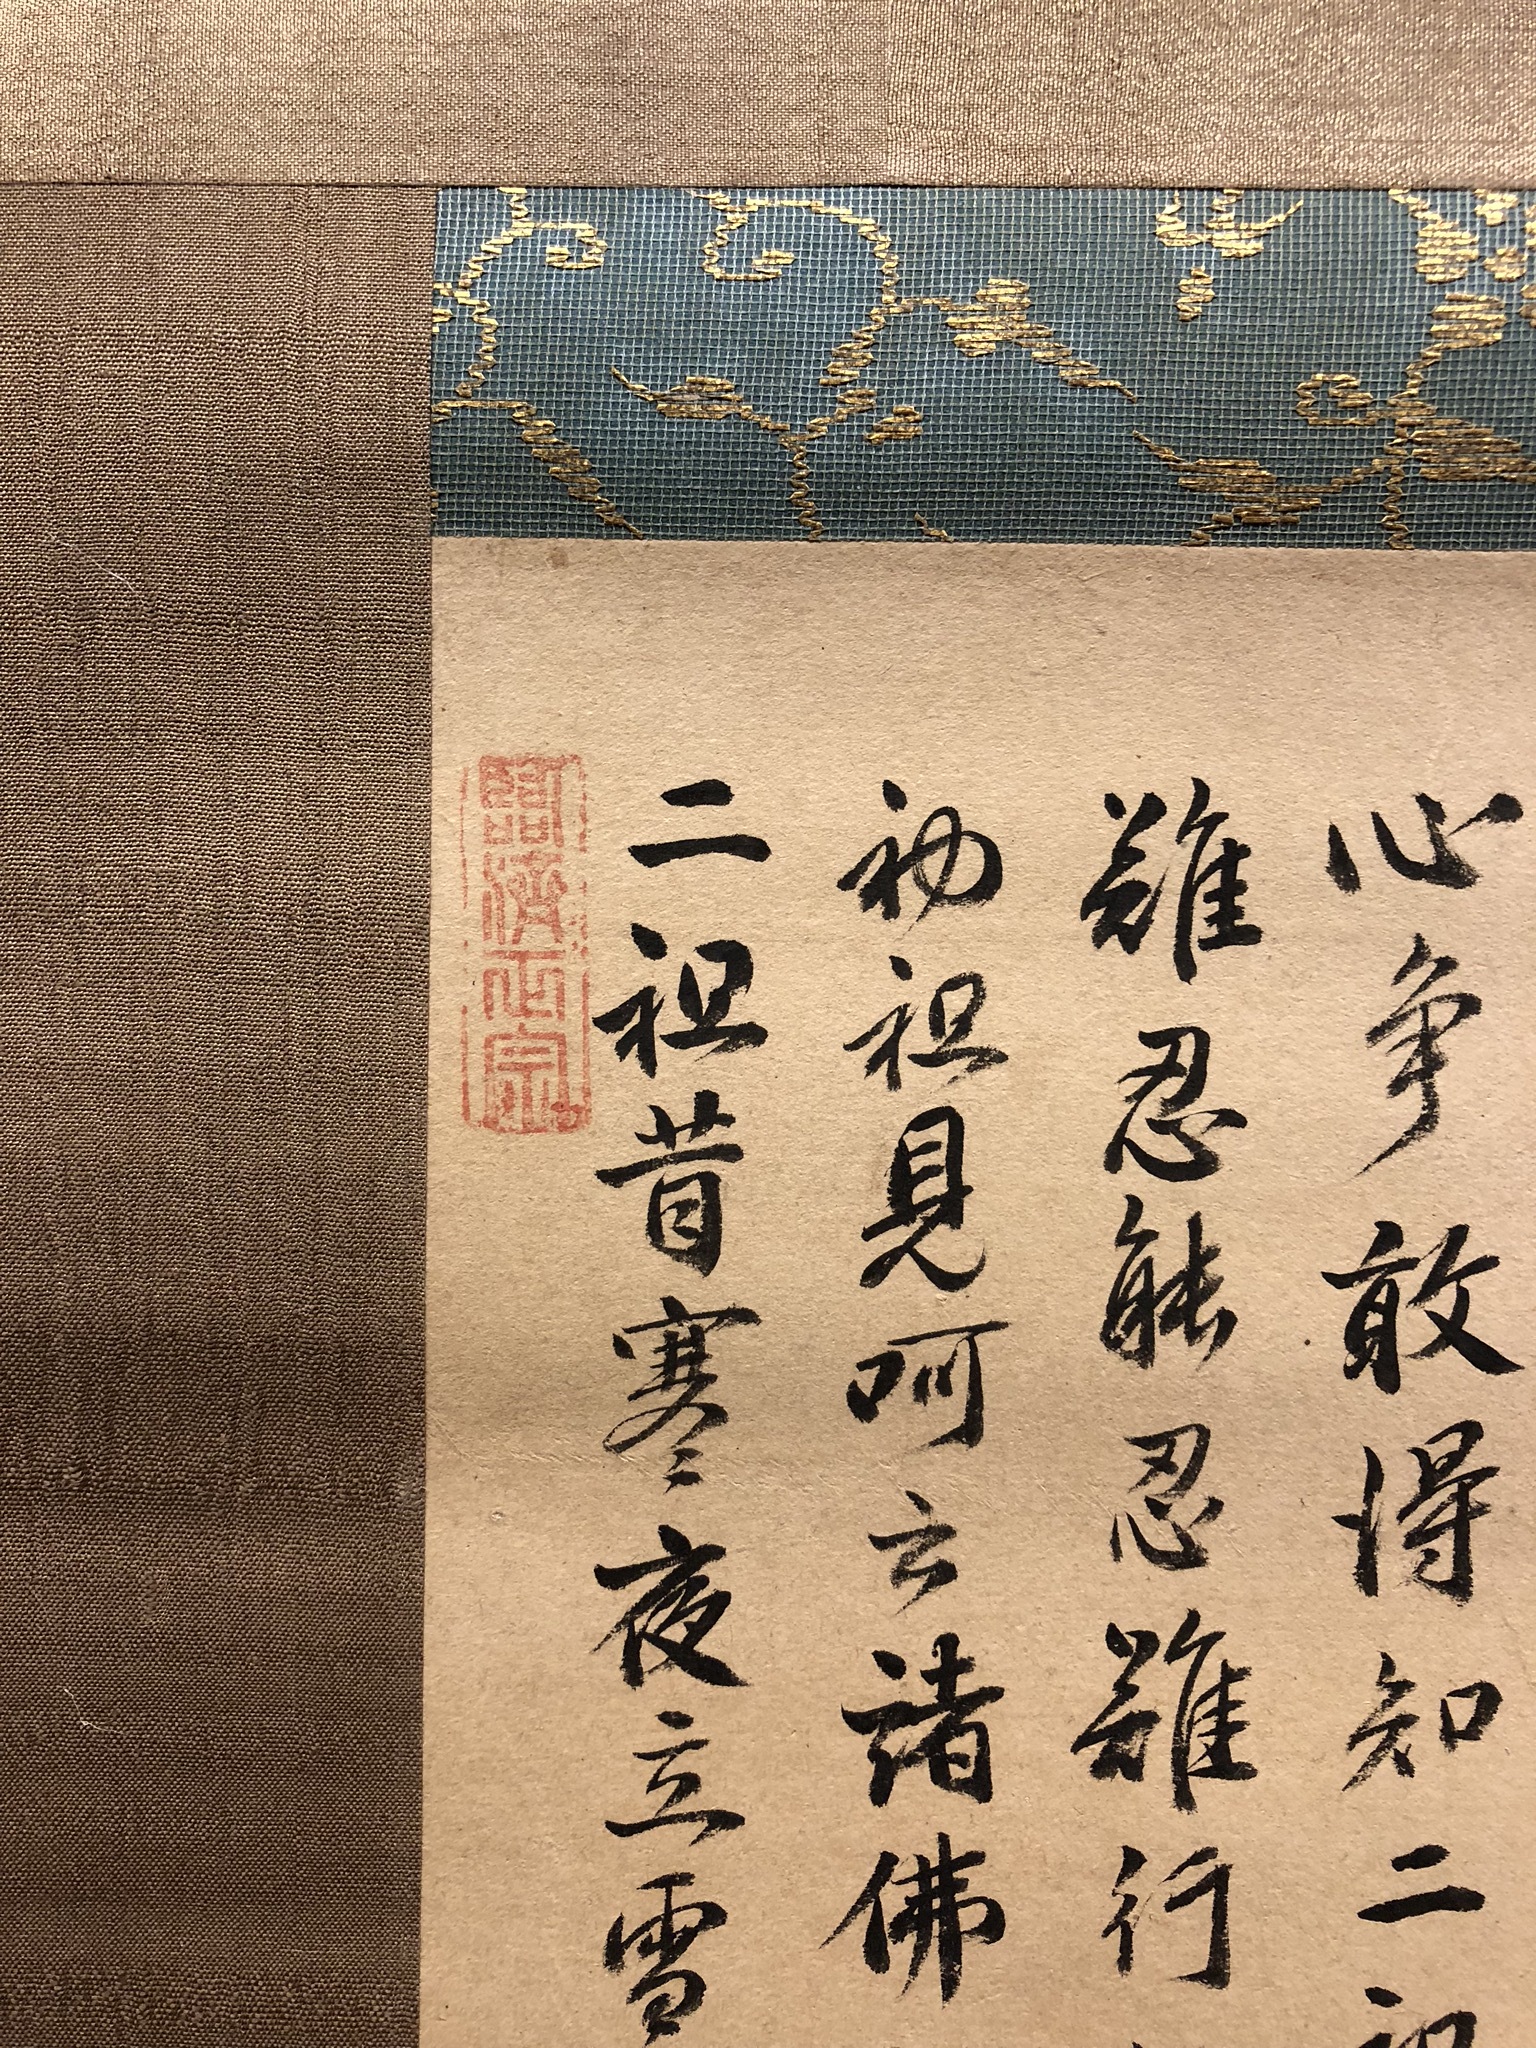 臨濟正宗
二祖昔寒夜立雪
初祖見呵云諸佛
難忍能忍難行
心争敢得知二祖